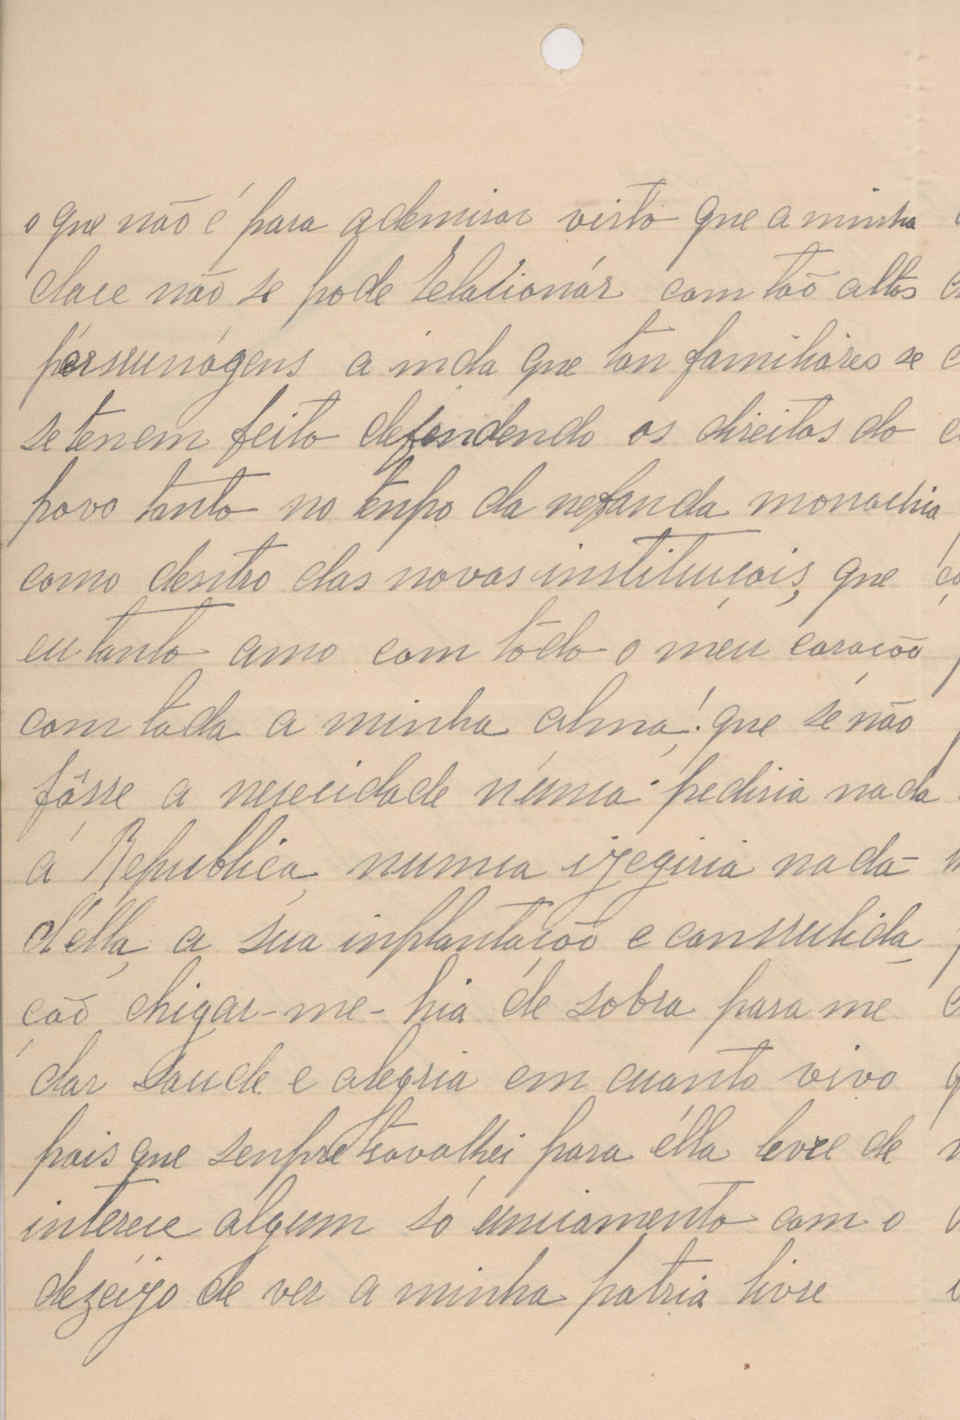 o que não é para ademirar visto que a minha
clace não se pode relacionár com tão altos
pérsunágens a inda que tan familiáres se
se tenem feito defendendo os direitos do
povo tanto no tenpo da nefanda monarchia
como dentro das novas instituiçois, que
eu tanto amo com tôdo o meu coração
com toda a minha alma! que sé não
fôsse a nececidade núnca pediria nada
á Republica, nunca ijegiria nada
d'élla, a sua inplantação e consulida_
ção chigar-me-hia de sobra para me
dar saude e alegria em cuanto vivo
pois que senpre travalhei para élla levre de
interece algum só unicamento com o
dezéijo de ver a minha patria livre